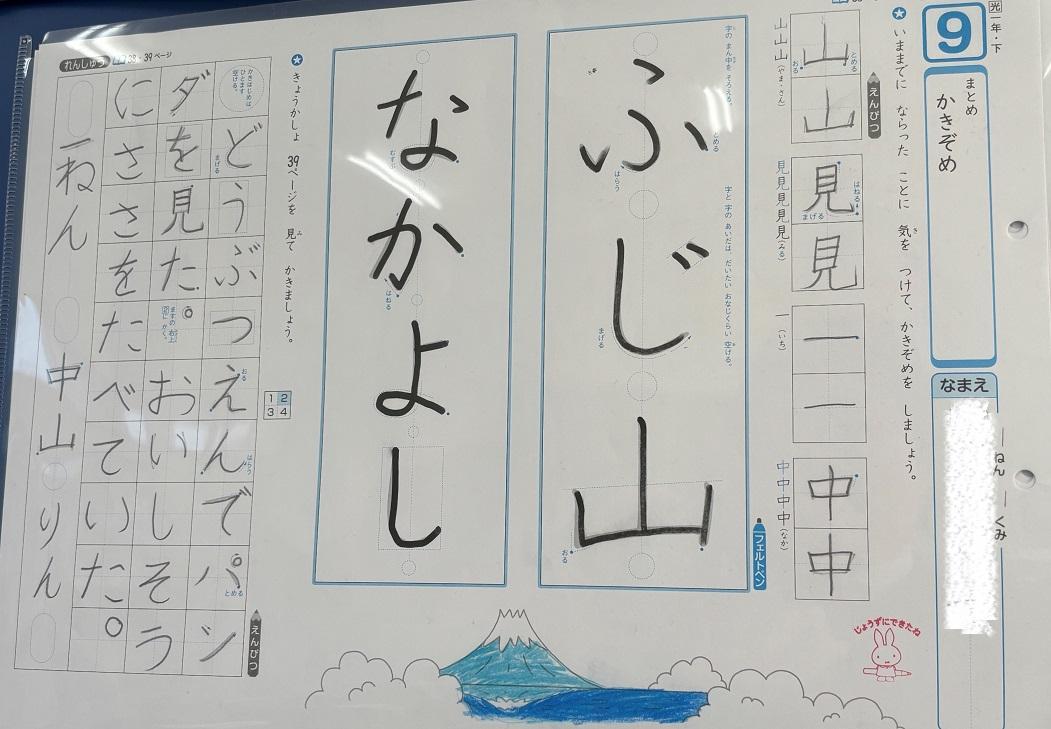 光一年・下
9
まとめ
かきぞめ
なまえ
一ねん 一くみ
★いままでに ならった ことに 気を つけて、かきぞめを しましょう。
き
えんぴつ
山
とめる
おる
山
山山山(やま・さん)
見
はねる
まげる
見
見見見見見(みる)
一
一
一(いち)
中
中
中中中中(なか)
じょうずにできたね
フェルトペン
字の まん中を そろえる。
字と 字の あいだは、だいたい おなじくらい 空ける。
ふじ山
とめる
はらう
まげる
おる
なかよし
むすぶ
はねる
★きょうかしょ 39ページを 見て かきましょう。
み
1 2
3 4
れんしゅう
38・39ページ
えんぴつ
かきはじめは
ひとます
空ける。
どうぶつえんでパン
まげる
おる
はらう
とめる
ダを見た。おいしそう
ますの 右上
に かく。
にささをたべていた。
一ねん 中山 りん